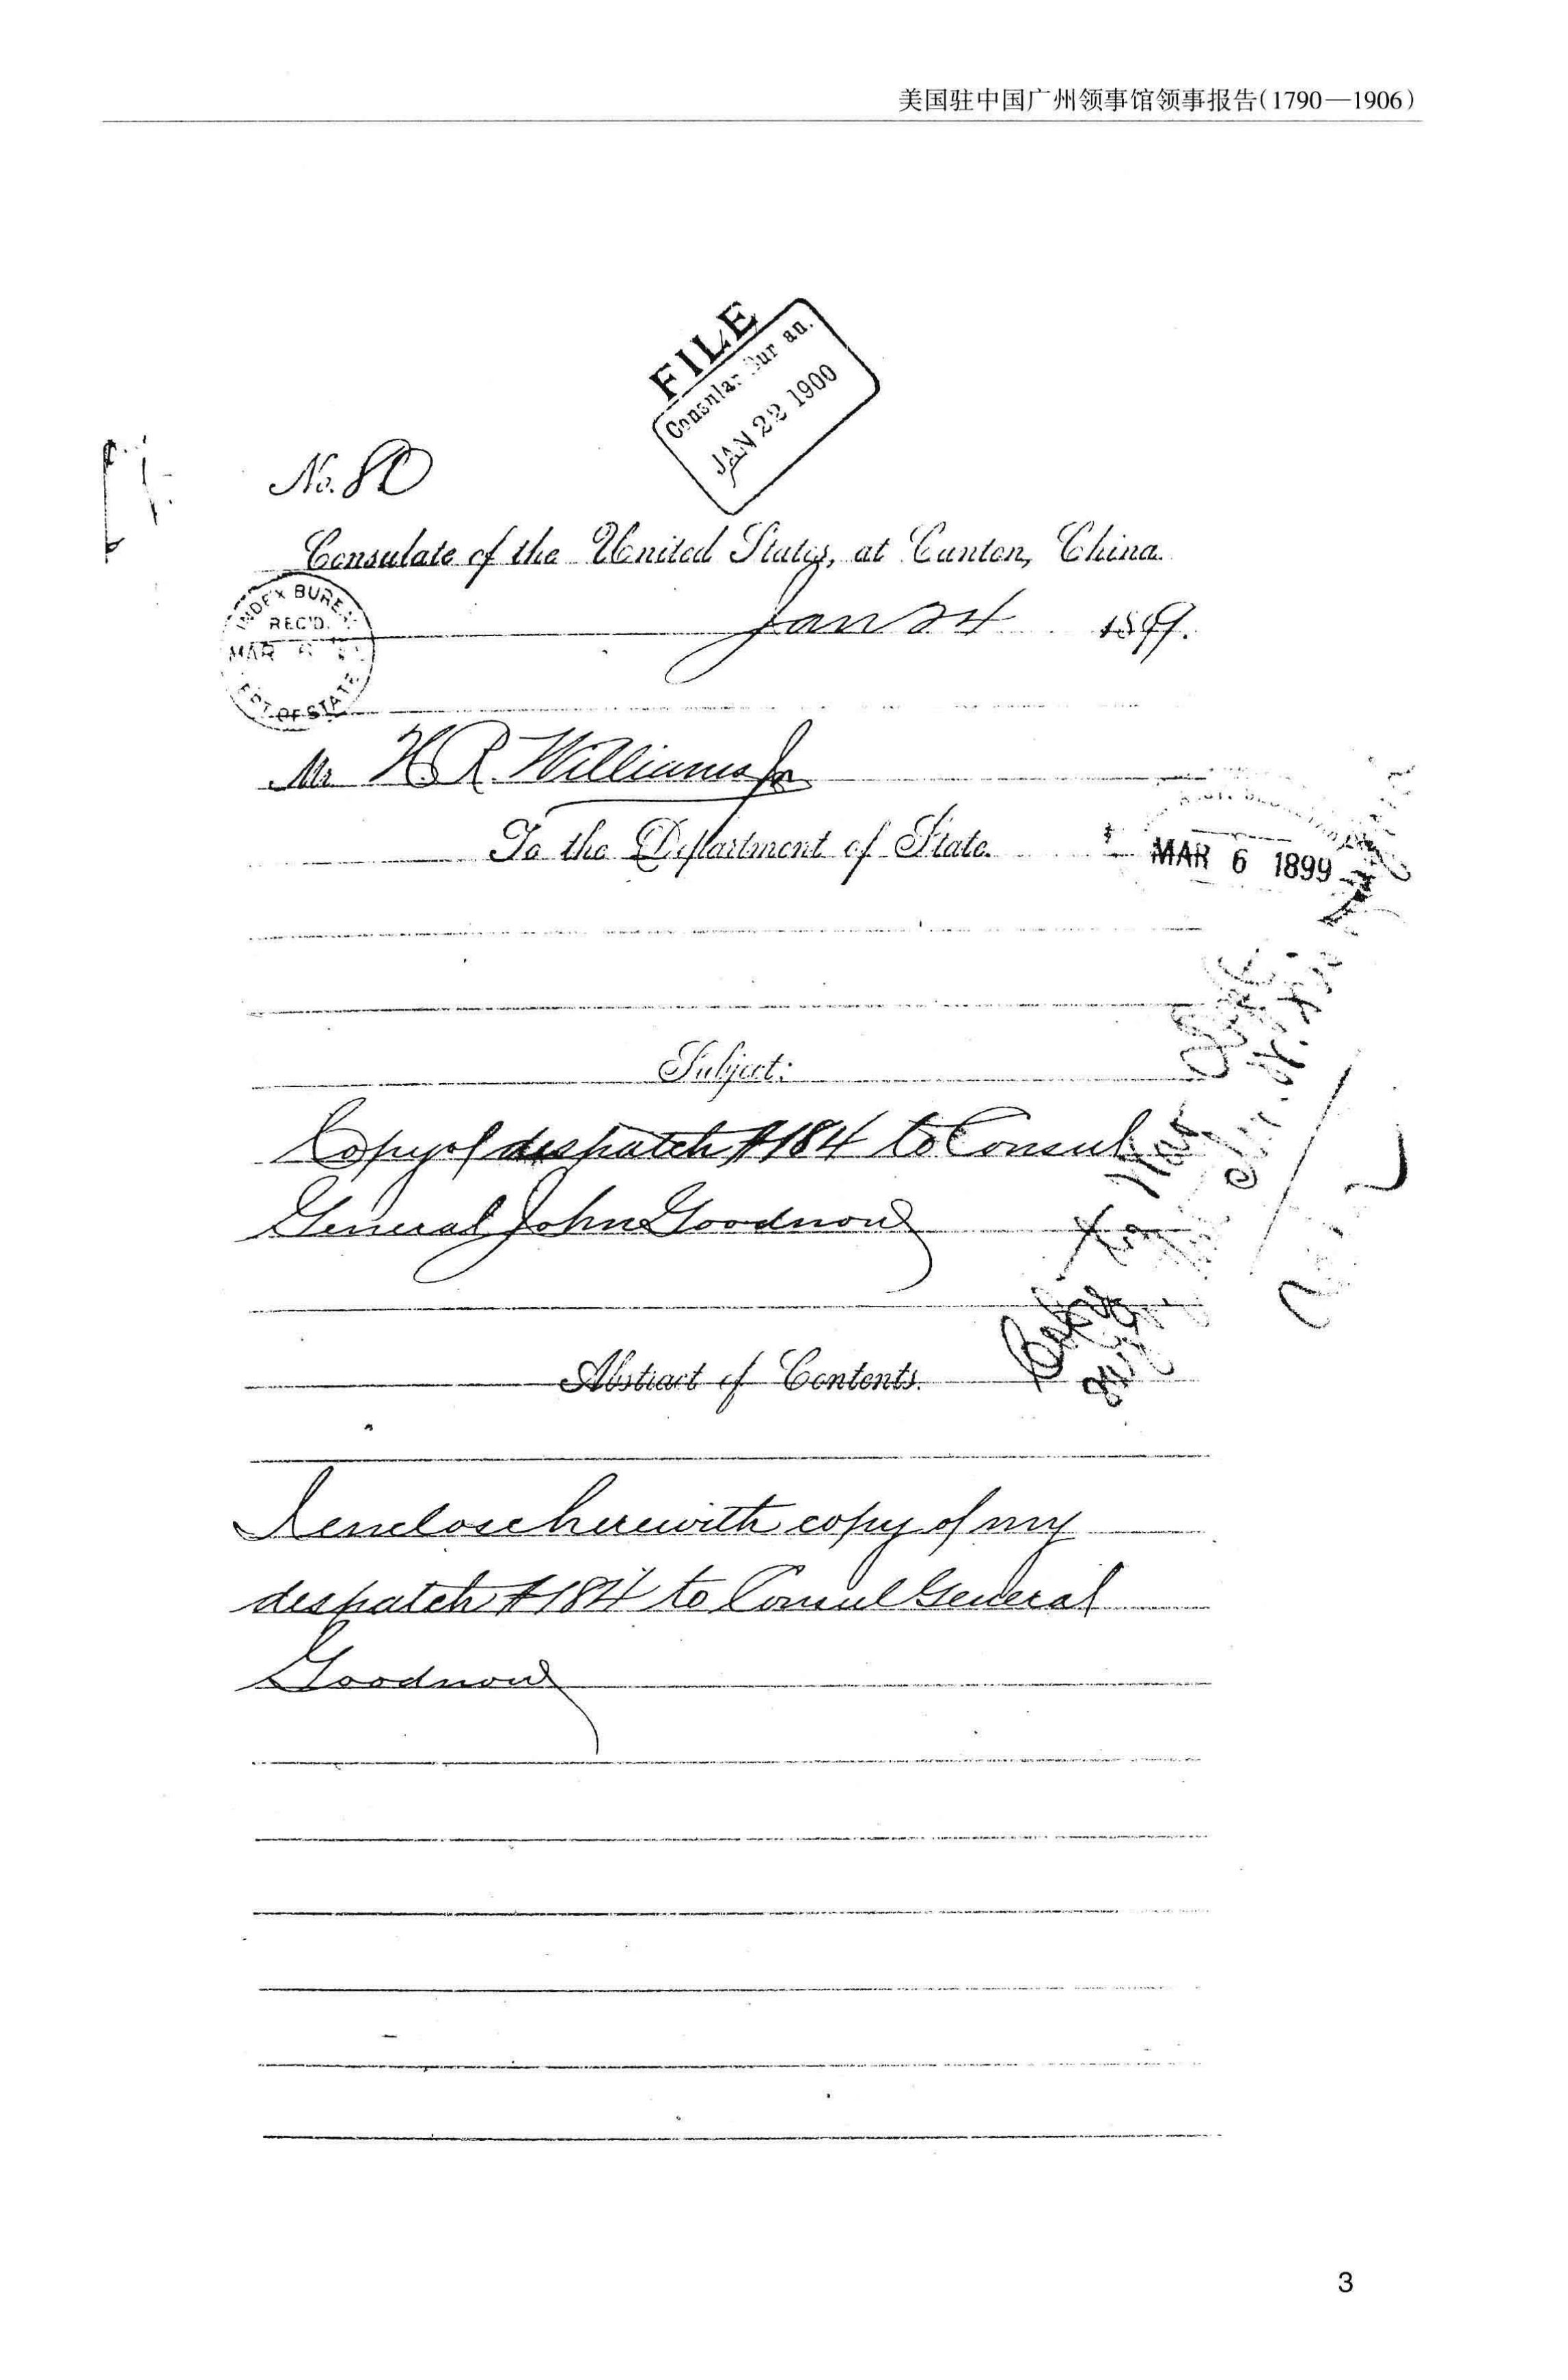 美国驻中国广州领事馆领事报告(1790—1906)
FILE
Consular
JAN 22 1900
No. 80
Consulate of the United States, at Canton, China.
Jan 24 1899.
INDEX BUREAU
REC'D.
MAR 6
DEPT OF STATE
Mr H. R. Williams Jr
To the Department of State.
MAR 6 1899
Subject:
Copy of despatch #184 to Consul
General John Goodnow
Copy to
Abstract of Contents.
I enclose herewith copy of my
despatch #184 to Consul General
Goodnow
3